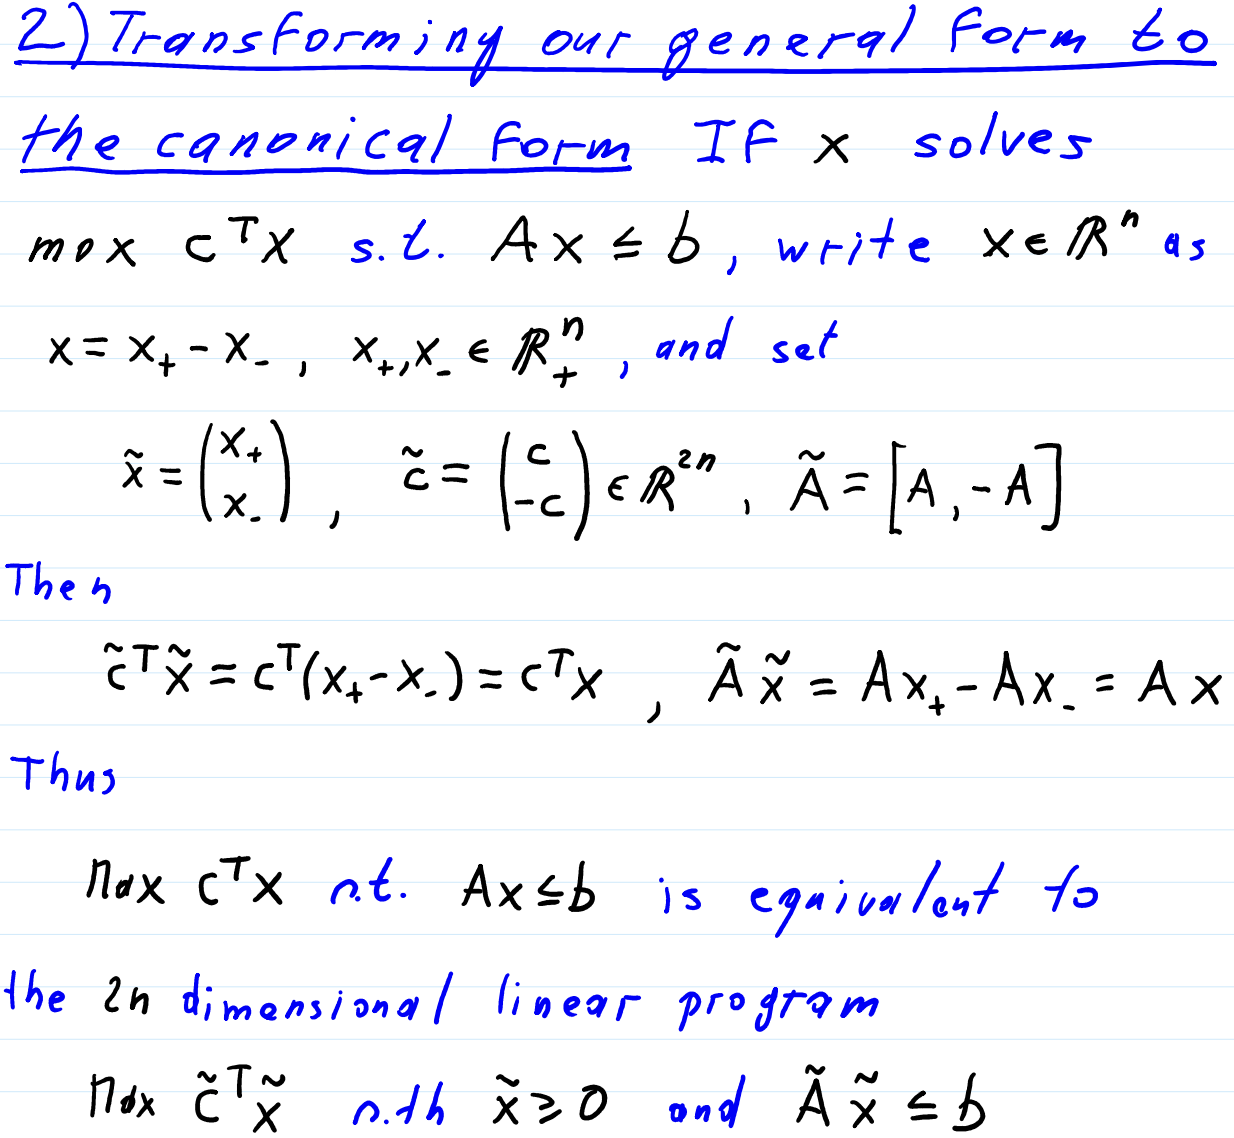 2) Transforming our general form to
the canonical form If x solves
max cᵀx s.t. Ax ≤ b, write x ∈ ℝⁿ as
x = x₊ - x₋, x₊, x₋ ∈ ℝ₊ⁿ, and set
x̃ = (x₊ x₋), c̃ = (c -c) ∈ ℝ²ⁿ, Ã = [A, -A]
Then
c̃ᵀx̃ = cᵀ(x₊ - x₋) = cᵀx, Ã x̃ = Ax₊ - Ax₋ = Ax
Thus
Max cᵀx s.t. Ax ≤ b is equivalent to
the 2n dimensional linear program
Max c̃ᵀx̃ s.th x̃ ≥ 0 and Ã x̃ ≤ b